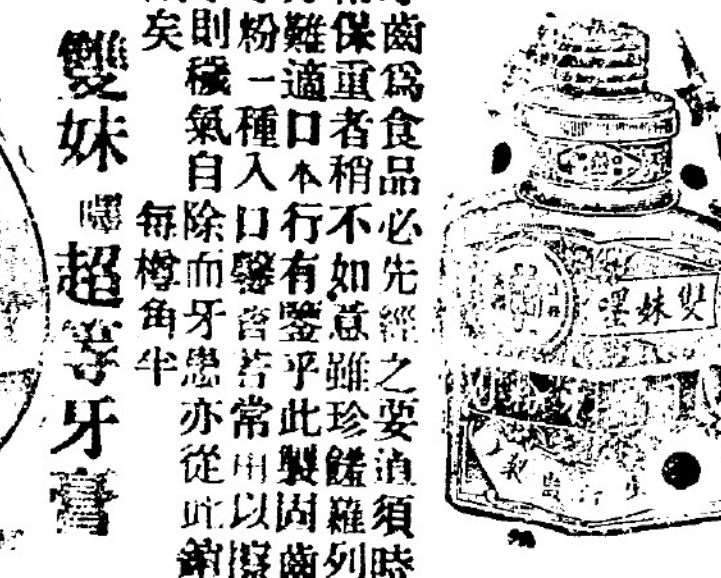 齒爲食品必先經之要道須時
保重者稍不如意雖珍饈羅列
難適口本行有鑒乎此製固齒
粉一種入口馨香若常用以擦
則穢氣自除而牙患亦從此銷
矣
每樽角半
雙妹嚜超等牙膏
雙妹嚜